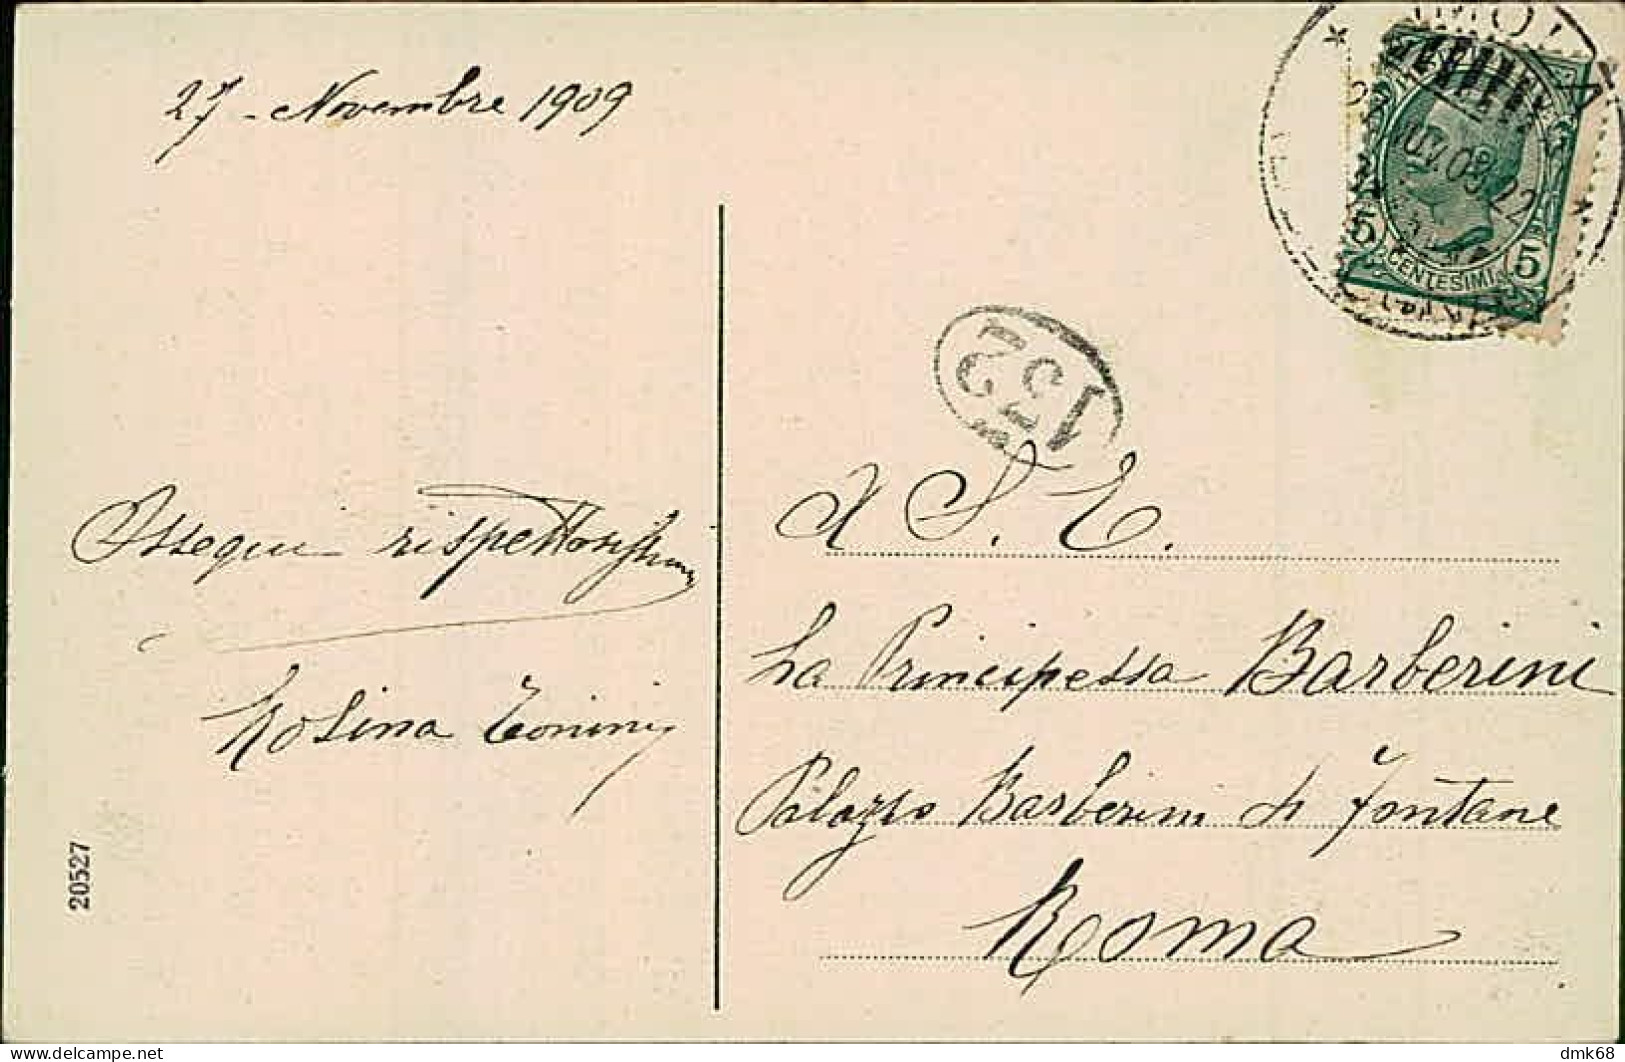 27 - Novembre 1909
Ossequi rispettosissimi
Rosina Tonini
20527
IMOLA
5 CENTESIMI 5
132
A S. E.
La Principessa Barberini
Palazzo Barberini 4 Fontane
Roma
dmk68